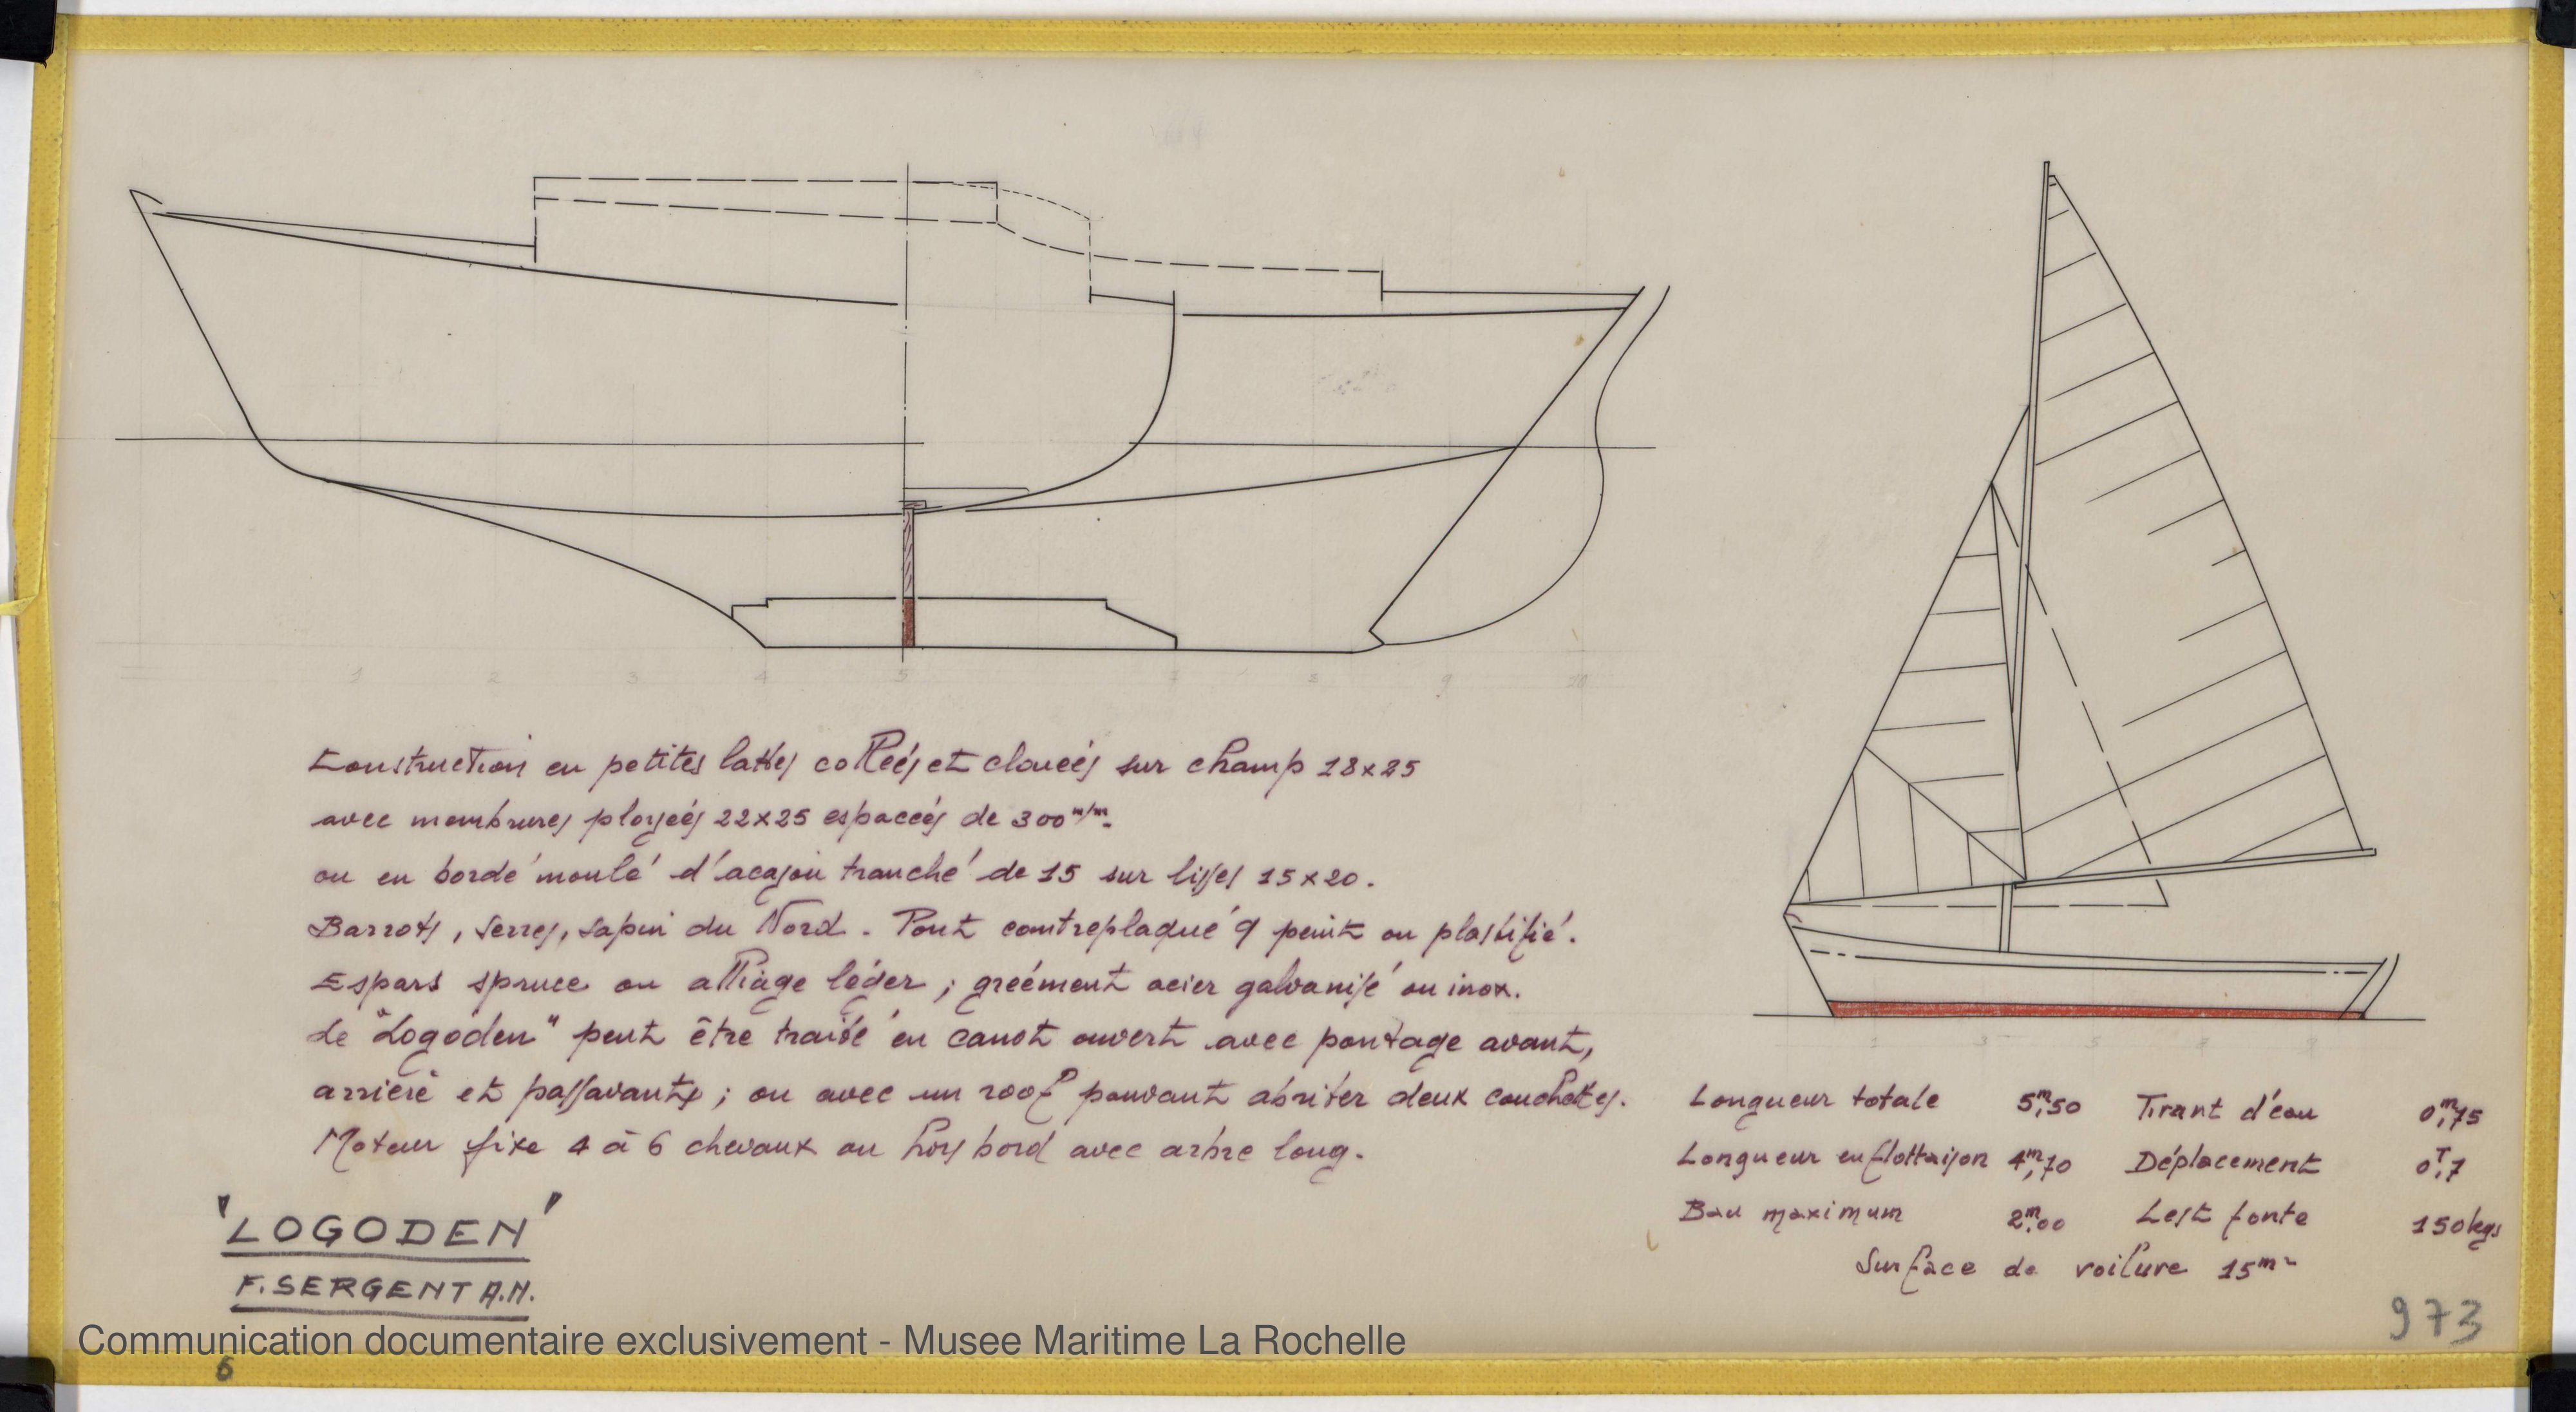 1 2 3 4 5 7 8 9 10
Construction en petites lattes collées et clouées sur champ 18x25
avec membrures ployées 22x25 espacées de 300 m/m.
ou en bordé moulé d'acajou tranché de 15 sur lisses 15x20.
Barrots, serres, sapin du Nord. Pont contreplaqué 9 peint ou plastifié.
Espars spruce ou alliage léger ; gréement acier galvanisé ou inox.
Le "Logoden" peut être traité en canot ouvert avec pontage avant,
arrière et passavants ; ou avec un roof pouvant abriter deux couchettes.
Moteur fixe 4 à 6 chevaux ou hors bord avec arbre long.
"LOGODEN"
F. SERGENT A.N.
Longueur totale 5m,50 Tirant d'eau 0m,75
Longueur en flottaison 4m,70 Déplacement 0T,7
Bau maximum 2m,00 Lest fonte 150kgs
Surface de voilure 15m²
973
Communication documentaire exclusivement - Musee Maritime La Rochelle
6